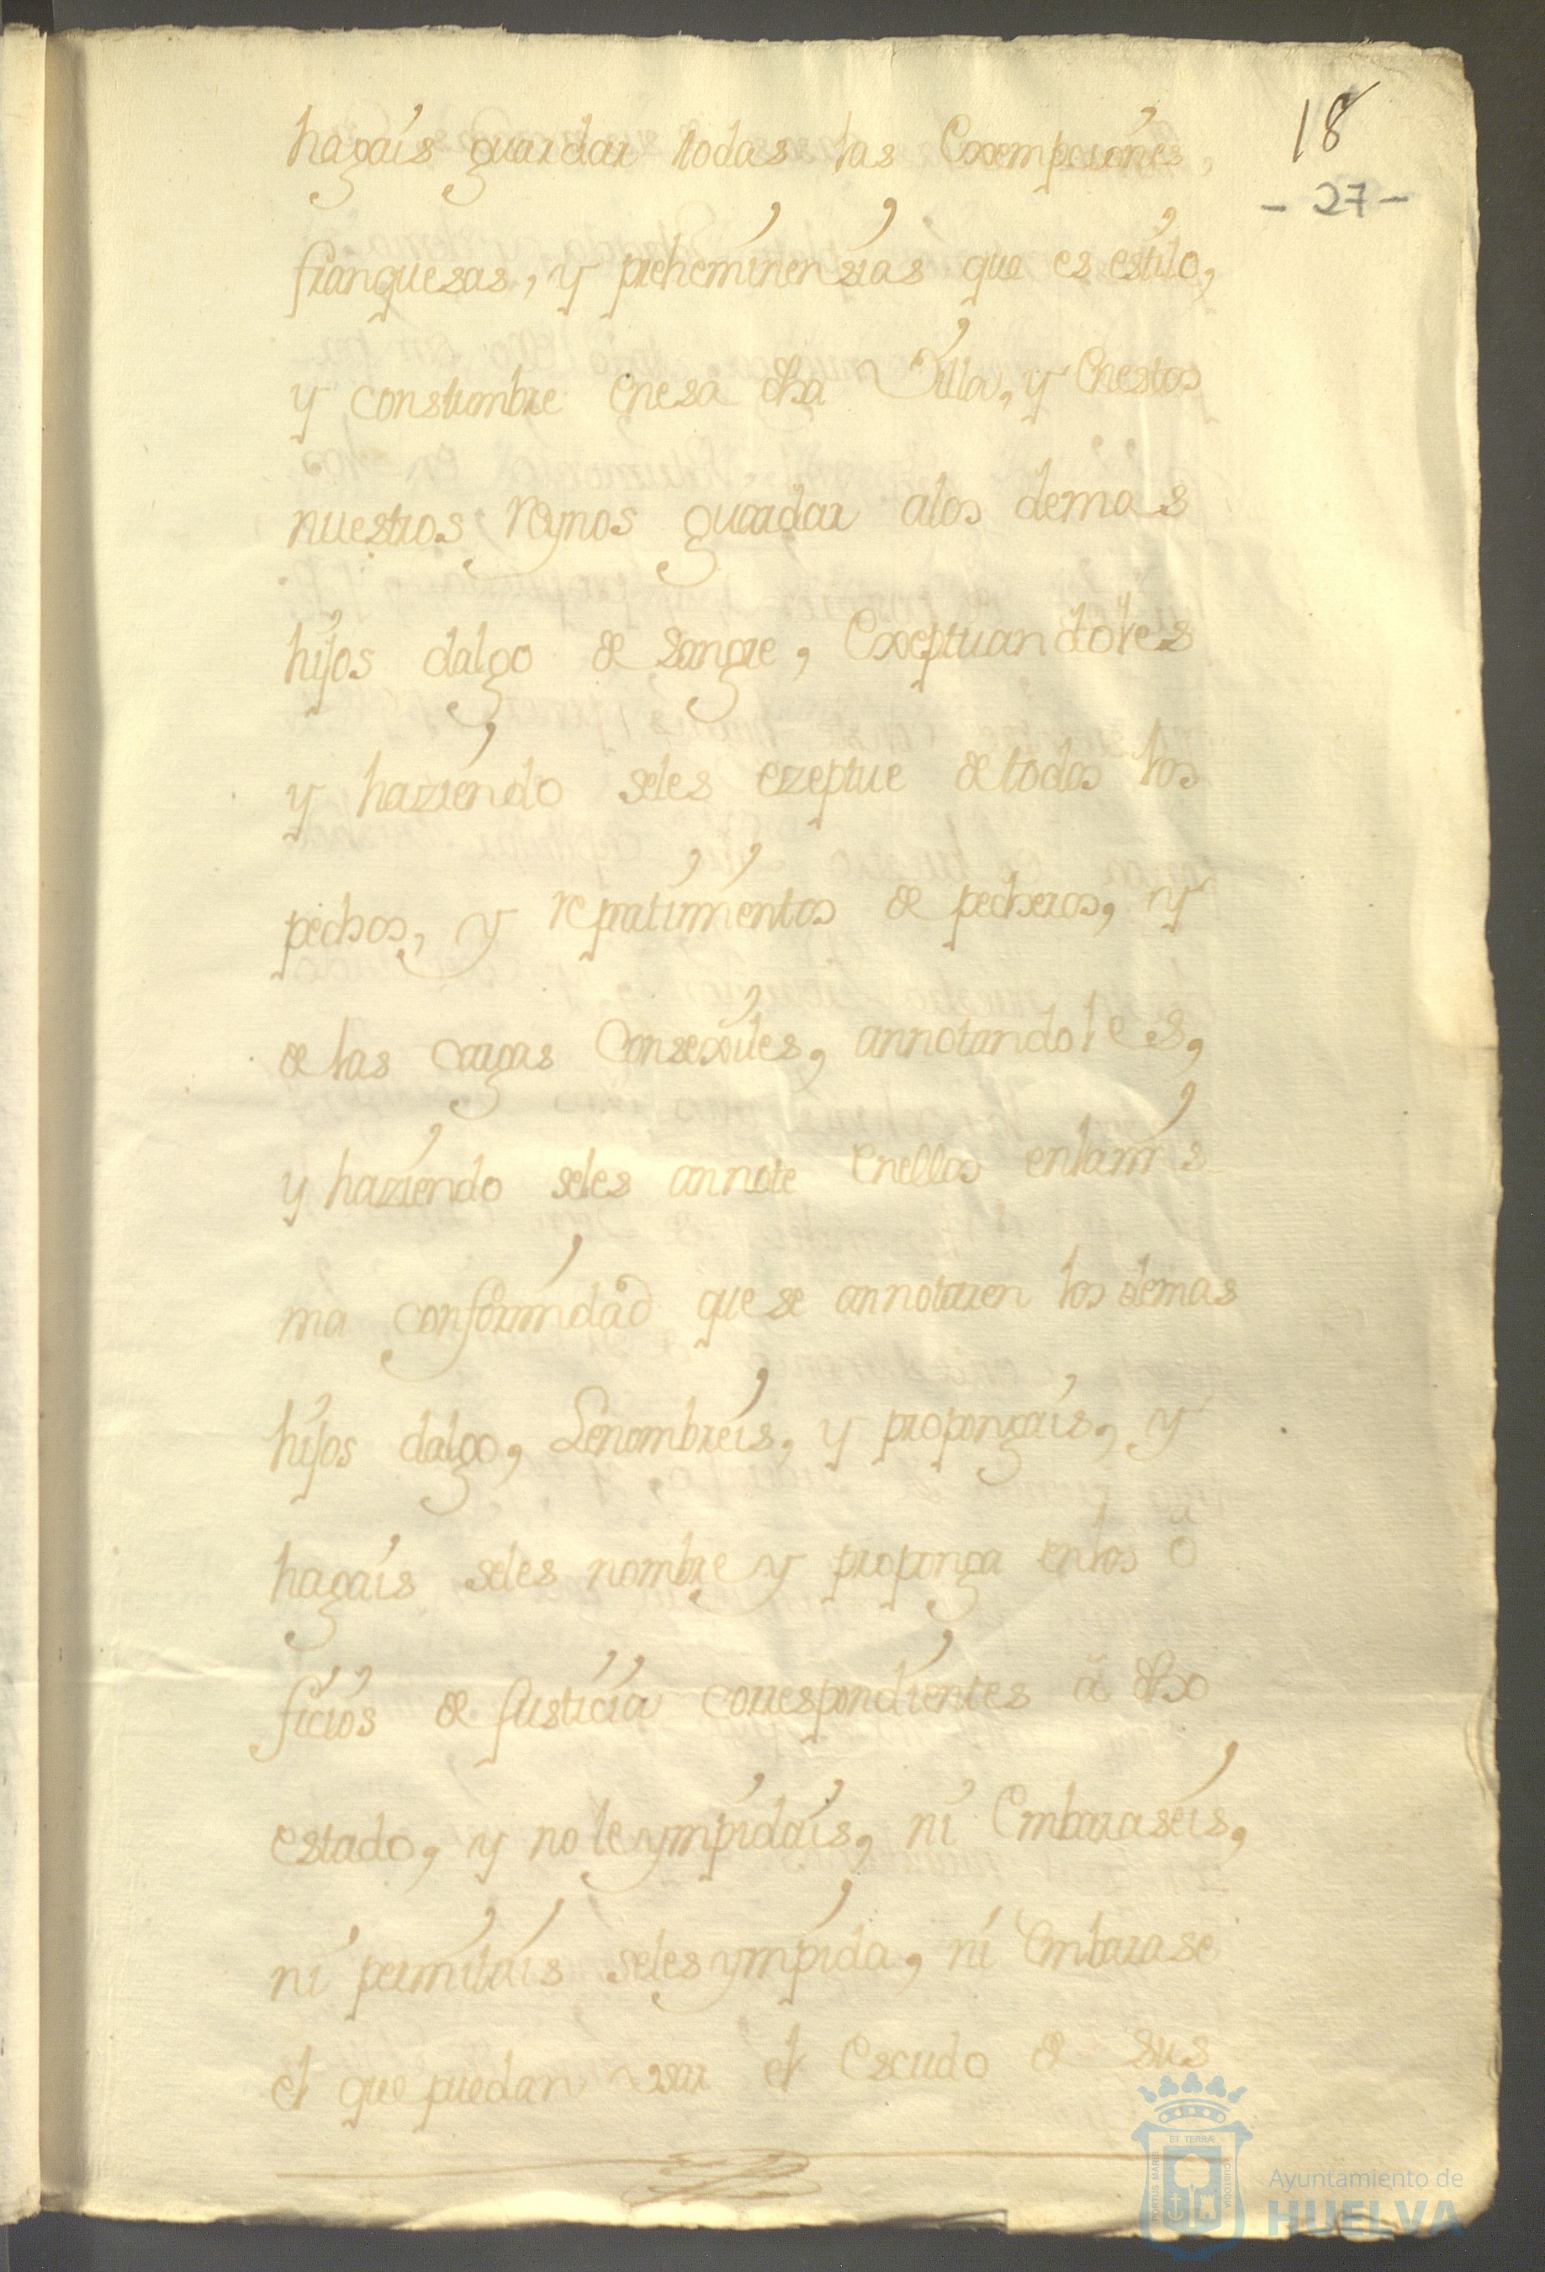 18
- 27 -
hagais guardar todas las Exempciones,
franquesas, y preheminensias que es estilo,
y constumbre enesa dha Villa, y Enestos
nuestros reynos guardar alos demas
hijos dalgo de sangre, Exeptuandoles
y haziendo seles ezeptue de todos los
pechos, y repratimientos de pecheros, y
de las cargas Consexiles, annotandoles,
y haziendo seles annote Enellos enlamis
ma conformidad que se annotaren los demas
hijos dalgo, Lenombreis, y propongais, y
hagais seles nombre y proponga enlos o
ficios de Justicia correspondientes á dho
estado, y no le ympidais, ni Embaraseis,
ni permitais seles ympida, ni Embarase
el que puedan usar el Escudo de sus
PORTUS MARIS
ET TERRÆ
CUSTODIA
Ayuntamiento de
HUELVA